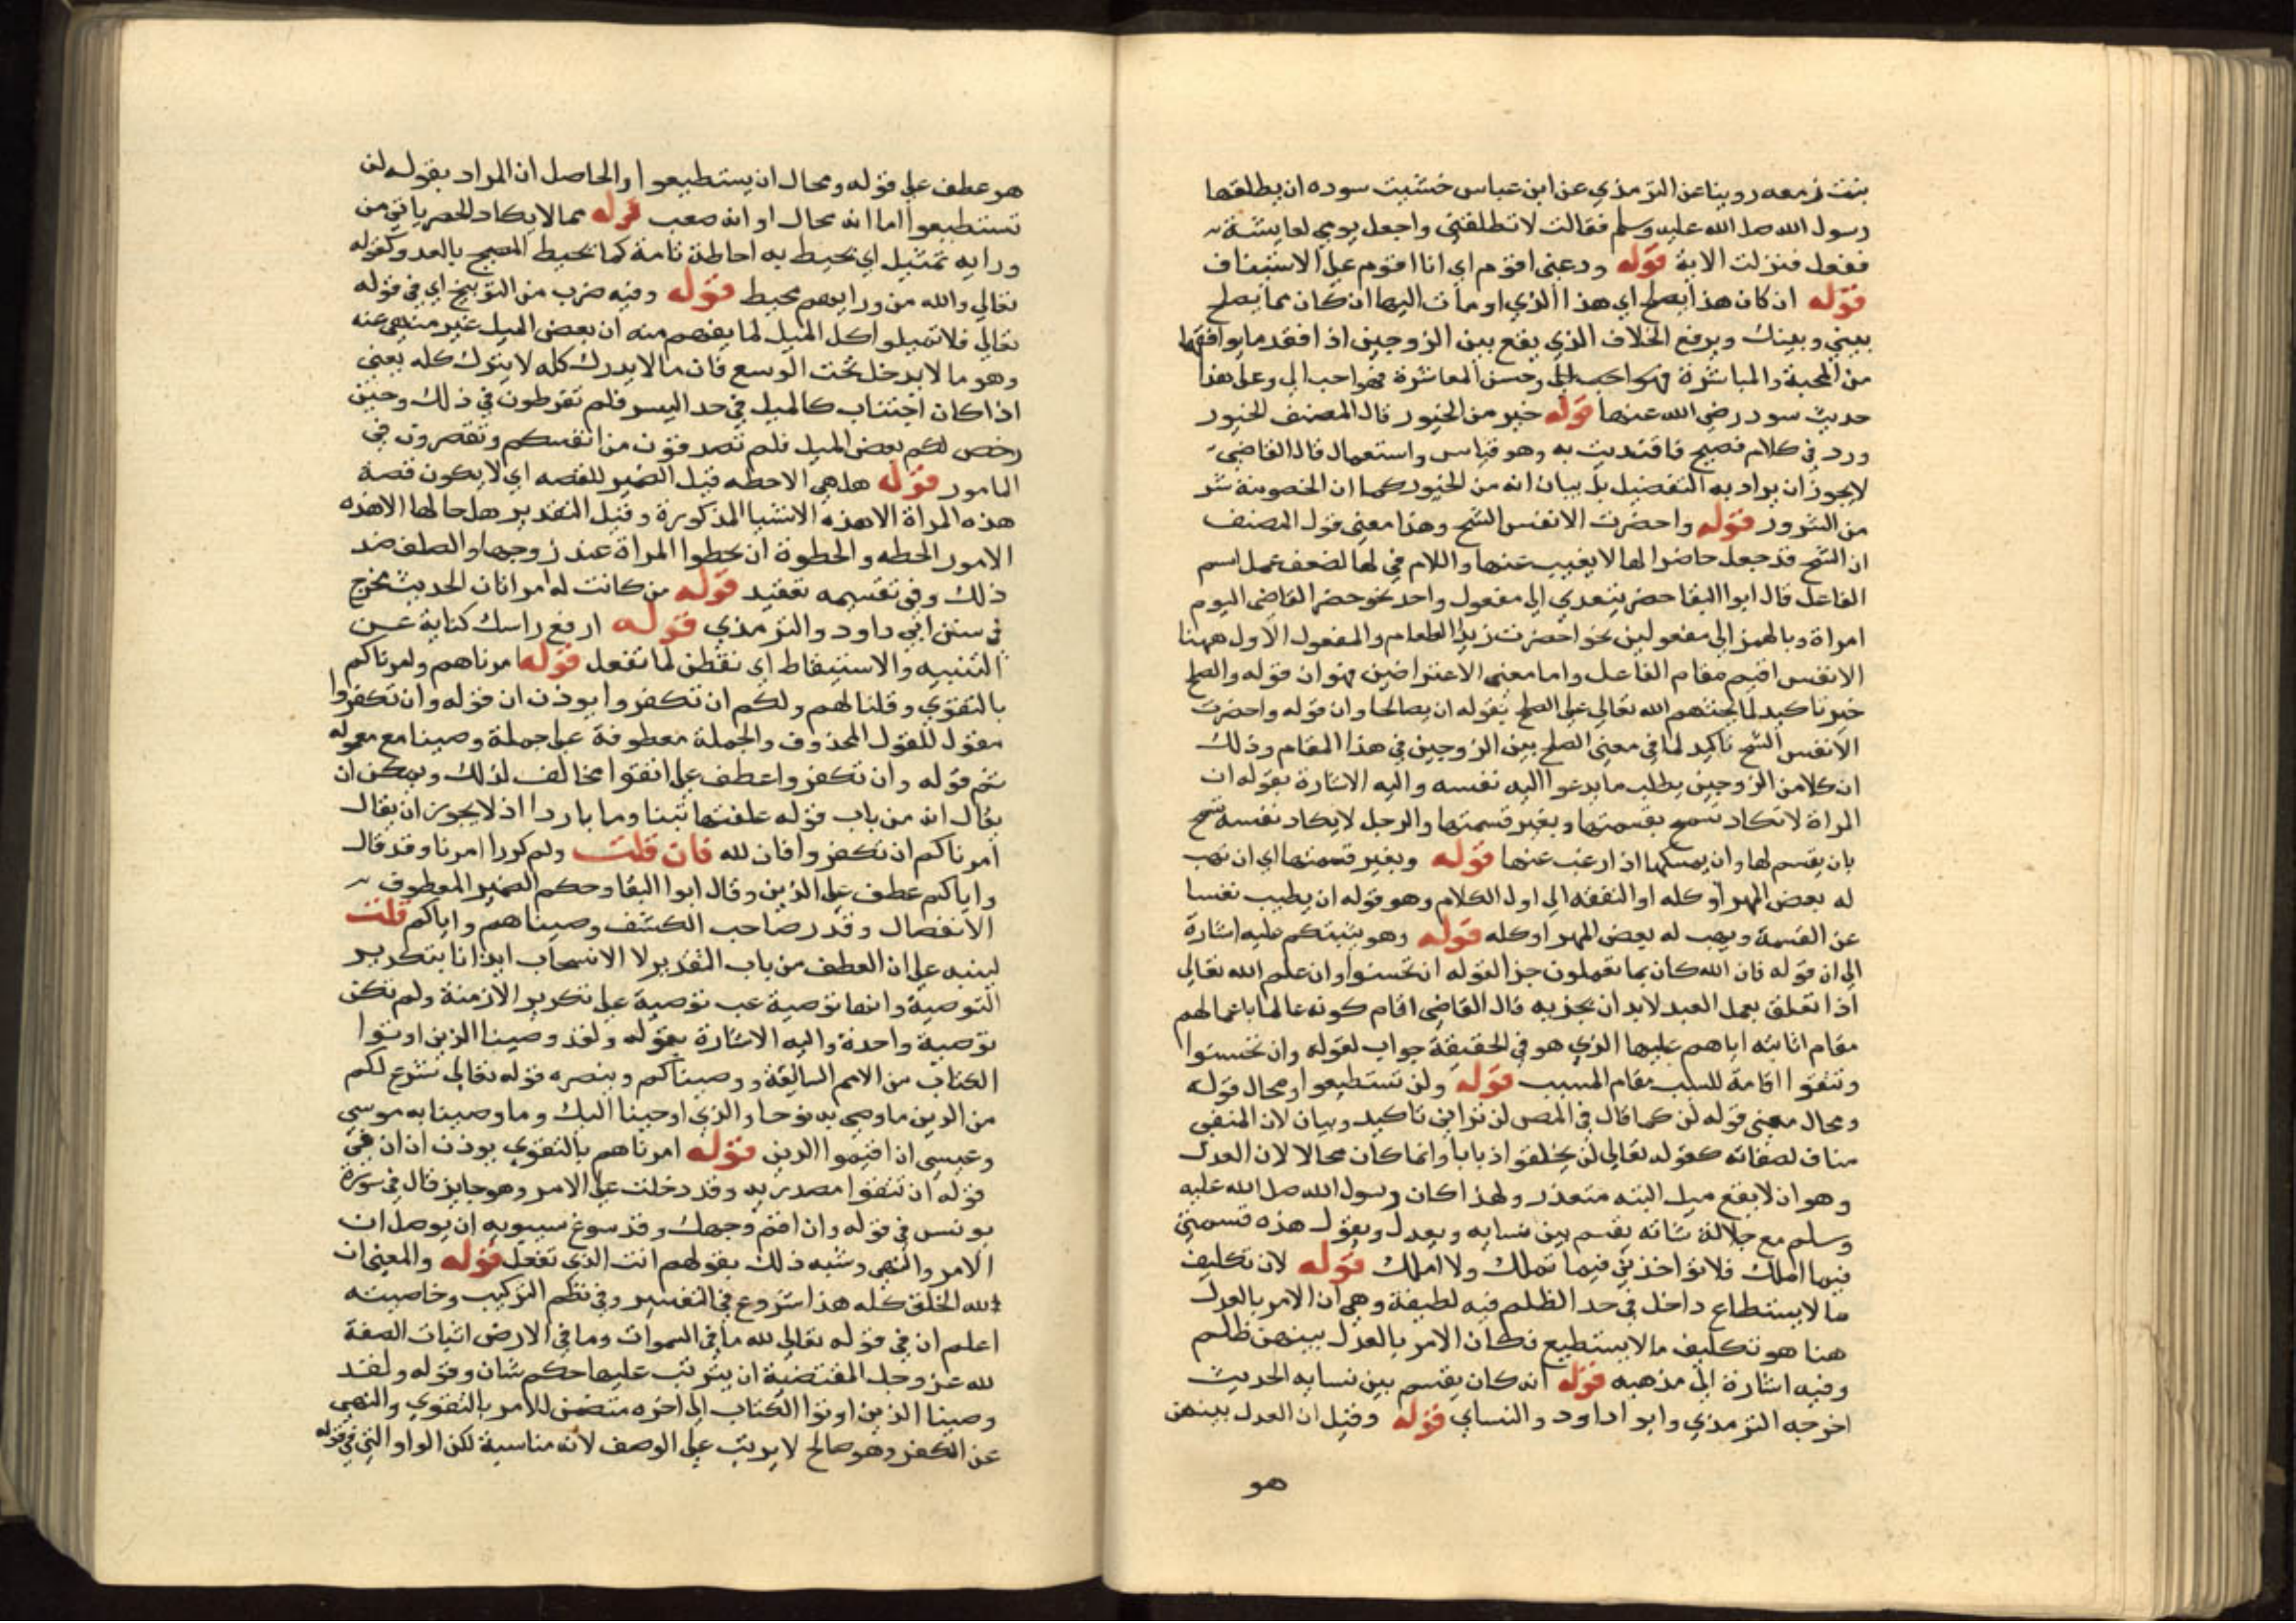 بنت زمعه روينا عن الترمذي عن ابن عباس خشيت سوده ان يطلقها
رسول الله صلى الله عليه وسلم فقالت لا تطلقني واجعل يومي لعايشة
ففعل فنزلت الاية قوله ودعني اقوم اي انا اقوم على الاستيناف
قوله ان كان هذا يصلح اي هذا الذي اومات اليها ان كان مما يصلح
بيني وبينك ويرفع الخلاف الذي يقع بين الزوجين اذا فقد ما يوافقها
من المحبة والمباشرة فهو احب الي وحسن المعاشرة فهو احب الي وعلى هذا
حديث سوده رضي الله عنها قوله خير من الخيور قال المصنف الخيور
ورد في كلام فصيح فاقتديت به وهو قياس واستعمال قال القاضي
لا يجوز ان يراد به التفضيل بل بيان انه من الخيور كما ان الخصومة شر
من الشرور قوله واحضرت الانفس الشح وهذا معنى قول المصنف
ان الشح قد جعل حاضرا لها لا يغيب عنها واللام في لها لضعف عمل اسم
الفاعل قال ابوا البقا حضر يتعدي الى مفعول واحد نحو حضر القاضي اليوم
امراة وبالهمز الى مفعولين نحو احضرت زيدا الطعام والمفعول الاول ههنا
الانفس اقيم مقام الفاعل واما معنى الاعتراضين فهو ان قوله والصلح
خير تاكيد لما يحثهم الله تعالى على الصلح بقوله ان يصالحا وان قوله واحضرت
الانفس الشح تاكيد لما في معنى الصلح بين الزوجين في هذا المقام وذلك
ان كلا من الزوجين يطلب ما يدعوا اليه نفسه واليه الاشارة بقوله ان
المراة لا تكاد تسمح بقسمتها وبغير قسمتها والرجل لا يكاد نفسه تسمح
بان يقسم لها وان يمسكها اذا رغب عنها قوله وبغير قسمتها اي ان تهب
له بعض المهر او كله او النفقه الى اول الكلام وهو قوله ان يطيب نفسا
عن القسمة ويهب له بعض المهر او كله قوله وهو يثيبكم عليه اشارة
الى ان قوله فان الله كان بما تعملون جزا لقوله ان تحسنوا وان علم الله تعالى
اذا تعلق بعمل العبد لابد ان يجزيه قال القاضي اقام كونه عالما باعمالهم
مقام اثابته اياهم عليها الذي هو في الحقيقة جواب لقوله وان تحسنوا
وتتقوا اقامة للسبب مقام المسبب قوله ولن تستطيعوا ومحال قوله
ومحال معنى قوله لن كما قال في المص لن تراني تاكيد وبيان لان المنفي
مناف لصفاته كقوله تعالى لن يخلقوا ذبابا وانما كان محالا لان العدل
وهو ان لا يقع ميل البته متعذر ولهذا كان رسول الله صلى الله عليه
وسلم مع جلالة شانه يقسم بين نسايه ويعدل ويقول هذه قسمتي
فيما املك فلا تؤاخذني فيما تملك ولا املك قوله لان تكليف
ما لا يستطاع داخل في حد الظلم فيه لطيفة وهي ان الامر بالعدل
هنا هو تكليف ما لا يستطيع فكان الامر بالعدل بينهن ظلم
وفيه اشارة الى مذهبه قوله انه كان يقسم بين نسايه الحديث
اخرجه الترمذي وابو اداود والنساي قوله وقيل ان العدل بينهن
هو
هو عطف على قوله ومحال ان يستطيعوا والحاصل ان المراد بقوله لن
تستطيعوا اما انه محال او انه صعب قوله مما لا يكاد الحصر ياتي من
ورايه تمثيل اي تحيط به احاطة تامة كما تحيط بالعدو كقوله
تعالى والله من ورايهم محيط قوله وفيه ضرب من التوبيخ اي في قوله
تعالى فلا تميلوا كل الميل لما يفهم منه ان بعض الميل غير منهي عنه
وهو ما لا يدخل تحت الوسع فان ما لا يدرك كله لا يترك كله يعني
اذا كان اجتناب كل الميل في حد اليسر فلم تفرطون في ذلك وحين
رخص لكم بعض الميل فلم تصدفون من انفسكم وتقصرون في
المامور قوله هل هي الا حظه قيل الضمير للقصه اي لا يكون قصة
هذه المراة الا هذه الاشيا المذكورة وقيل التقدير هل حالها الا هذه
الامور الحظه والحظوة ان تحظوا المراة عند زوجها والصلف ضد
ذلك وفي تقسيمه تعقيد قوله من كانت له امراتان الحديث مخرج
في سنن ابي داود والترمذي قوله ارفع راسك كناية عن
التنبيه والاستيقاظ اي تفطن لما تفعل قوله امرناهم وامرناكم
بالتقوي وقلنا لهم ولكم ان تكفروا يوذن ان قوله وان تكفروا
مقول للقول المحذوف والجملة معطوفة على جملة وصينا مع معموله
ثم قوله وان تكفروا عطف على اتقوا مخالف لذلك ويمكن ان
يقال انه من باب قوله علفتها تبنا وما باردا اذ لا يجوز ان يقال
امرناكم ان تكفروا فان لله فان قلت ولم كررا امرنا وقد قال
واياكم عطف على الذين وقال ابوا البقا وحكم الضمير المعطوف
الانفصال وقدر صاحب الكشف وصيناهم واياكم قلت
لينبه على ان العطف من باب التقدير لا الانسحاب ايذانا بتكرير
التوصية وانها توصية غب توصية على تكرير الازمنة ولم تكن
توصية واحدة واليه الاشارة بقوله ولقد وصينا الذين اوتوا
الكتاب من الامم السالفة ووصيناكم وينصره قوله تعالى شرع لكم
من الدين ما وصى به نوحا والذي اوحينا اليك وما وصينا به موسى
وعيسى ان اقيموا الدين قوله امرناهم بالتقوي يوذن ان ان في
قوله ان تتقوا مصدريه وقد دخلت على الامر وهو جايز قال في سورة
يونس في قوله وان اقم وجهك وقد سوغ سيبويه ان يوصل ان
الامر والنهي وشبه ذلك بقولهم انت الذي تفعل قوله والمعنى ان
لله الخلق كله هذا شروع في التفسير وفي نظم التركيب وخاصيته
اعلم ان في قوله تعالى لله ما في السموات وما في الارض اثبات الصفة
لله عز وجل المقتضية ان يترتب عليها حكم شان وقوله ولقد
وصينا الذين اوتوا الكتاب الى اخره متضمن للامر بالتقوي والنهي
عن الكفر وهو صالح لا يرتب على الوصف لانه مناسبة لكن الواو التي في قوله